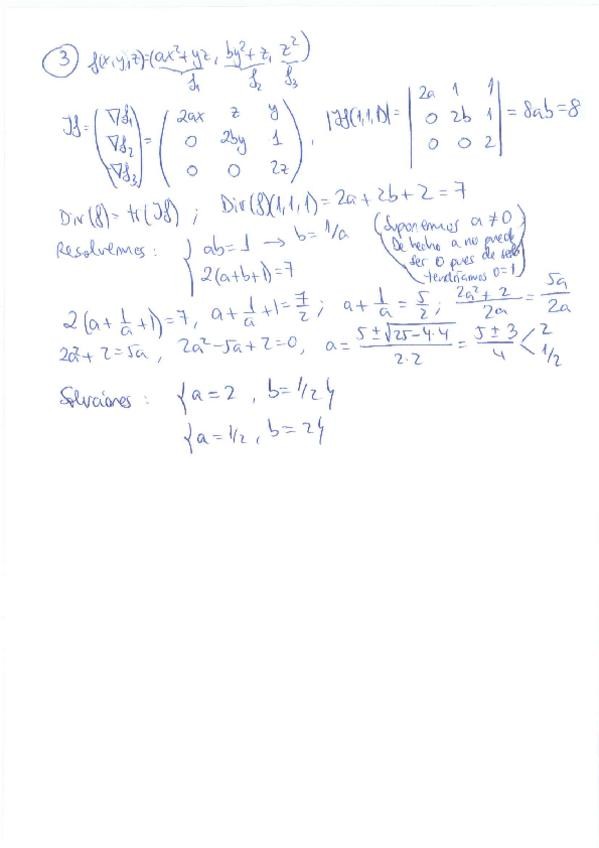 ③ f(x,y,z)=(ax²+yz, by²+z, z²)
f₁ f₂ f₃
Jf=(∇f₁ ∇f₂ ∇f₃)=(2ax z y; 0 2by 1; 0 0 2z), |Jf(1,1,1)|=|2a 1 1; 0 2b 1; 0 0 2|=8ab=8
Div(f)=tr(Jf); Div(f)(1,1,1)=2a+2b+2=7
Resolvemos: {ab=1 → b=1/a
2(a+b+1)=7
(Suponemos a≠0
De hecho a no puede
ser 0 pues de serlo
tendríamos 0=1)
2(a+1/a+1)=7, a+1/a+1=7/2; a+1/a=5/2; (2a²+2)/2a=5a/2a
2a²+2=5a, 2a²-5a+2=0, a=(5±√25-4·4)/(2·2)=(5±3)/4 < 2 1/2
Soluciones: {a=2, b=1/2}
{a=1/2, b=2}